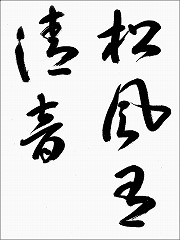 松風五
清音